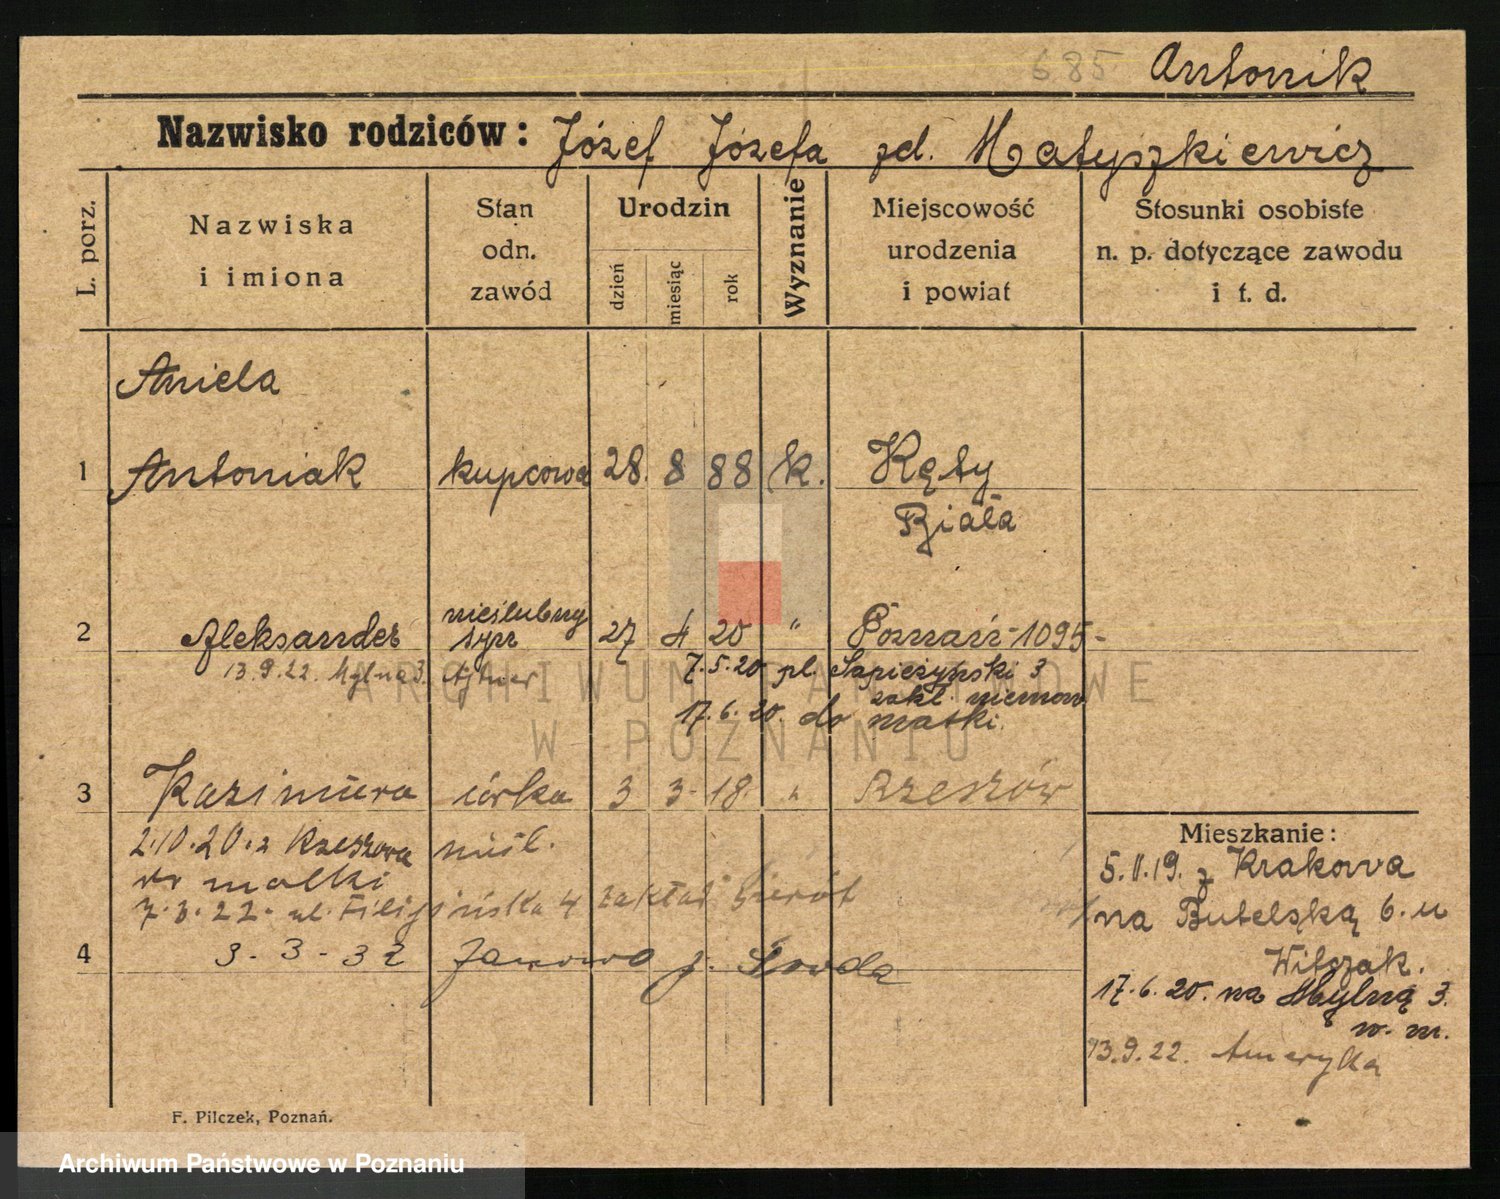 685 Antonik
Nazwisko rodziców: Józef Józefa zd. Matyszkiewicz
L. porz.
Nazwiska
i imiona
Stan
odn.
zawód
Urodzin
dzień
miesiąc
rok
Wyznanie
Miejscowość
urodzenia
i powiat
Stosunki osobiste
n. p. dotyczące zawodu
i t. d.
Aniela
1 Antoniak kupcowa 28. 8 88 k. Kęty
Biała
nieślubny
2 Aleksander syn 27 4 20 " Poznań-1095-
13.9.22. Mylna 3. Ajtner 7.5.20 pl. Sapieżyński 3
zakł. niemow
17.6.20. do matki.
3 Kazimiera córka 3 3- 18. " Rzeszów
2.10.20. z Rzeszowa nieśl.
do matki
7.3.22. ul. Filipińska 4 zakład Sierót
4 3-3-32 Janowo p. Środa
Mieszkanie:
5.II.19. z Krakowa
na Butelską 6. u
Witczak.
17.6.20. na Mylną 3.
w. m.
13.9.22. Ameryka
F. Pilczek, Poznań.
ARCHIWUM PAŃSTWOWE
W POZNANIU
Archiwum Państwowe w Poznaniu